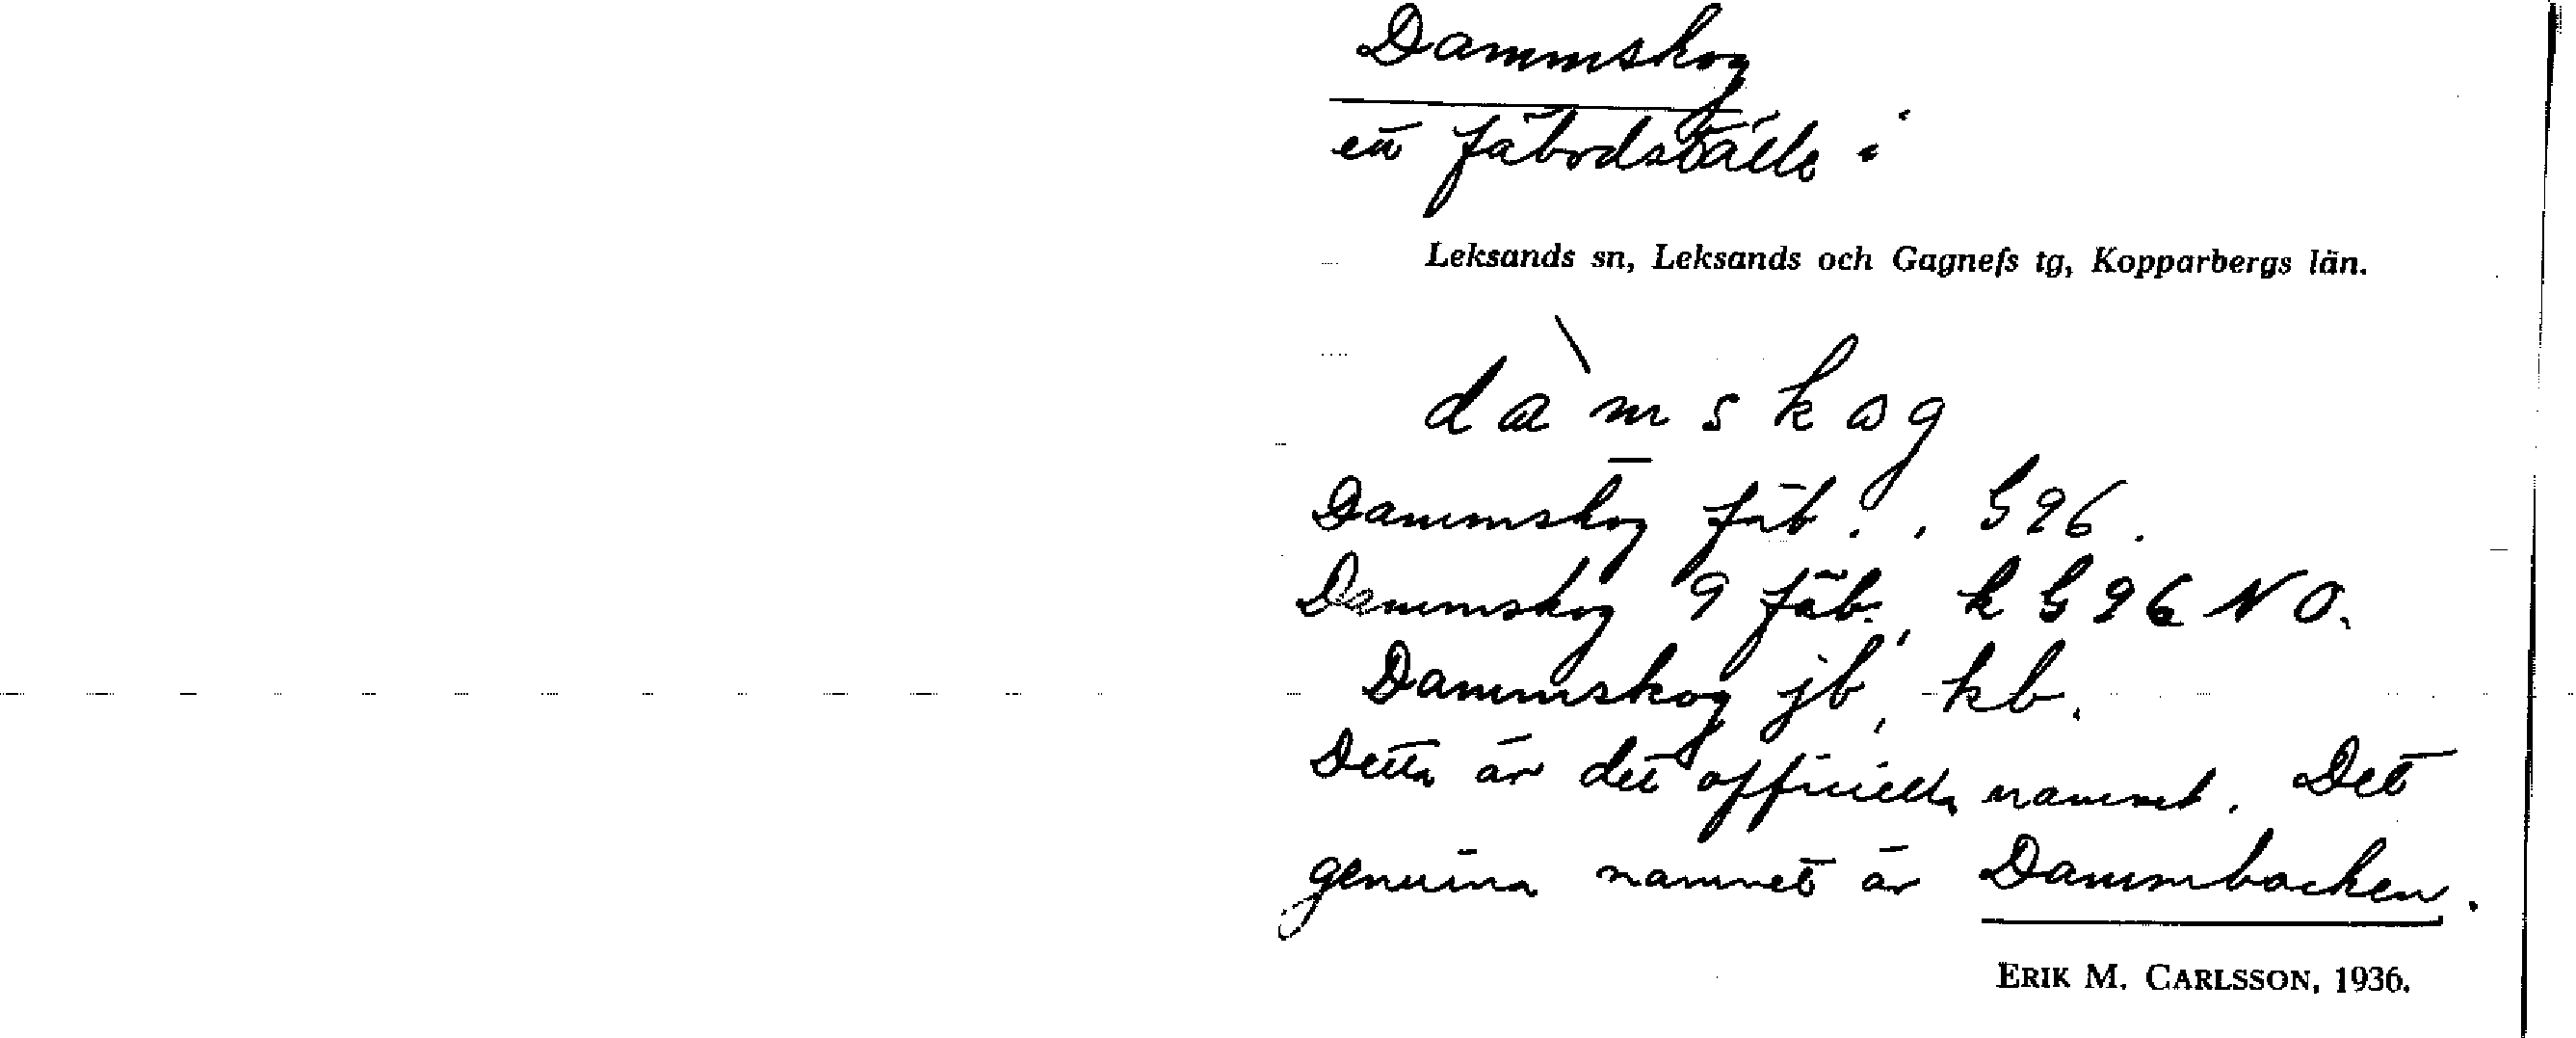 Dammskog
ett fäbodställe i
Leksands sn, Leksands och Gagnefs tg, Kopparbergs län.
dàmskog
Dammskog fäb., G96.
Dammskog 9 fäb., k G96 NO.
Dammskog jb, kb.
Detta är det officiella namnet. Det
genuina namnet är Dammbacken.
ERIK M. CARLSSON, 1936.